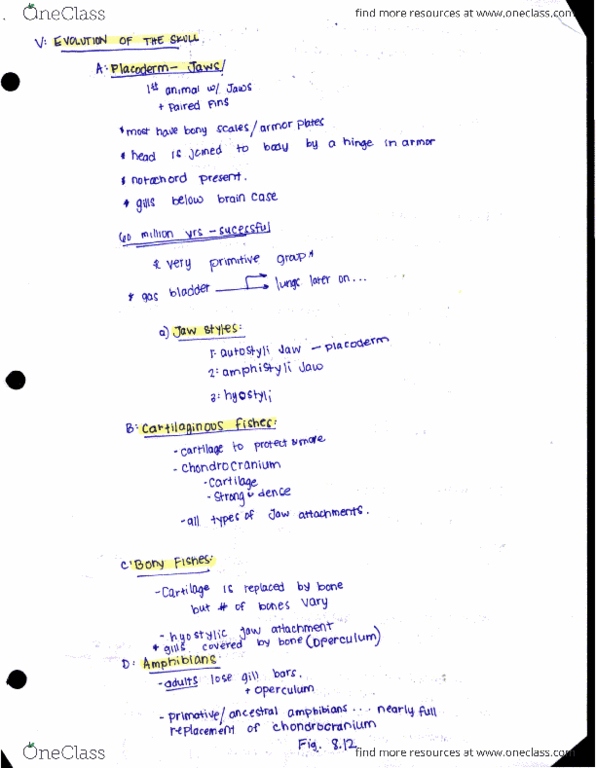 OneClass
find more resources at www.oneclass.com
V: EVOLUTION OF THE SKULL.
A: Placoderm - Jaws/
1st animal w/ Jaws
+ Paired Fins
*most have bony scales/armor plates
* head is joined to body by a hinge in armor
* notochord present.
* gills below brain case
60 million yrs - sucessful
* very primitive group*
* gas bladder → lungs later on...
a) Jaw styles:
1: autostyli Jaw - placoderm
2: amphistyli Jaw
3: hyostyli
B: Cartilaginous fishes:
- cartilage to protect & more
- Chondrocranium
- Cartilage
- Strong & dence
- all types of Jaw attachments.
C: Bony Fishes:
- Cartilage is replaced by bone
but # of bones vary
- hyostylic jaw attachment
* gills covered by bone (operculum)
D: Amphibians:
- adults lose gill bars.
+ operculum
- primative/ancestral amphibians... nearly full
replacement of chondrocranium
Fig. 8.12
OneClass
find more resources at www.oneclass.com